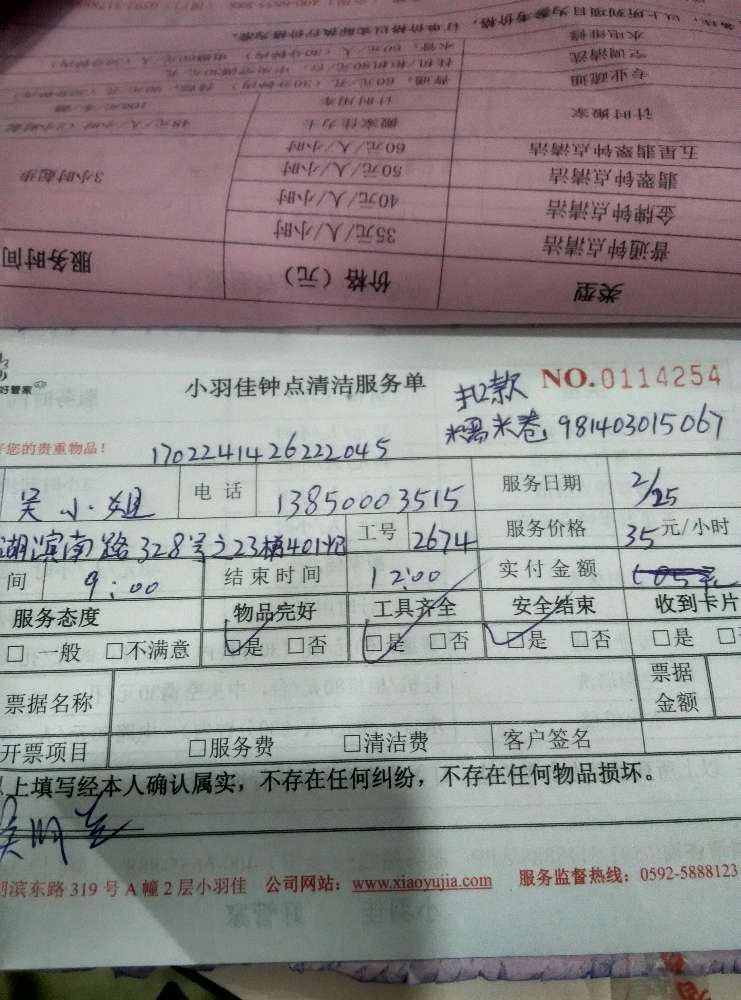 备注：以上所列项目为参考价格，订单价格以实际执行价格为准。
水电维修
空调清洗
专业疏通
计时搬家 计时用车
搬家佳力士 48元/人/小时
五星翡翠钟点清洁 60元/人/小时
翡翠钟点清洁 50元/人/小时 3小时起步
金牌钟点清洁 40元/人/小时
普通钟点清洁 35元/人/小时
类型 价格（元） 服务时间
好管家
小羽佳钟点清洁服务单
扣款 NO.0114254
糯米卷 981403015067
您的贵重物品！
1702241426222045
吴小姐 电话 13850003515 服务日期 2/25
湖滨南路328号之23梯401 工号 2674 服务价格 35元/小时
间 9:00 结束时间 12:00 实付金额
服务态度 物品完好 工具齐全 安全结束 收到卡片
□一般 □不满意 □是 □否 □是 □否 □是 □否 □是
票据名称 票据金额
开票项目 □服务费 □清洁费 客户签名
上填写经本人确认属实，不存在任何纠纷，不存在任何物品损坏。
滨东路 319 号 A 幢 2 层小羽佳 公司网站：www.xiaoyujia.com 服务监督热线：0592-5888123